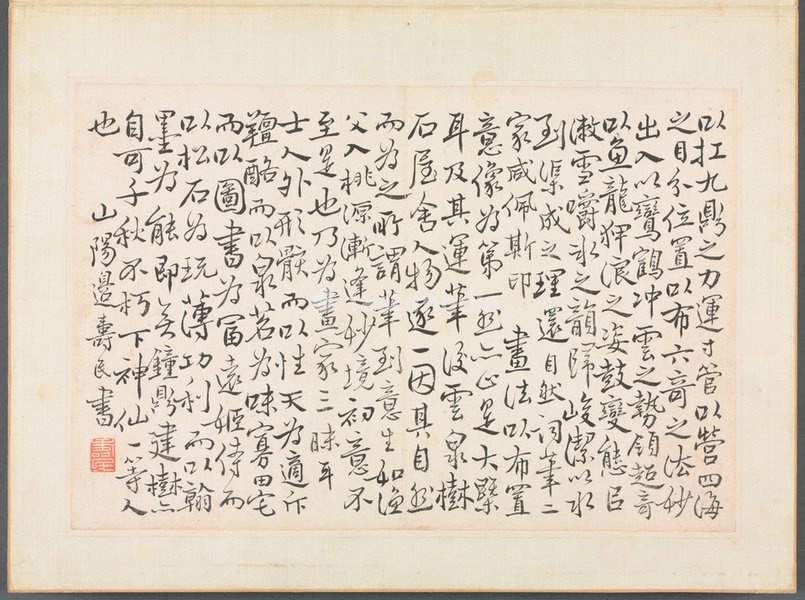 以扛九鼎之力運寸管以營四海
之目分位置以布六奇之法妙
出入以鸞鶴冲雲之勢領超奇
以魚龍狎浪之姿鼓變態呂
漱雪嚼冰之韻歸峻潔以水
到渠成之理還自然詞筆二
家咸佩斯印 畫法以布置
意像為第一然亦止是大槩
耳及其運筆後雲泉樹
石屋舍人物逐一因其自然
而為之所謂筆到意生如漁
父入桃源漸逢妙境初意不
至是也乃為畫家三昧耳
士人外形骸而以性天為適斥
羶酪而以泉茗為味寡田宅
而以圖書為富遠姬侍而
以松石為玩薄功利而以翰
墨為能即無鐘鼎建樹
自可千秋不朽下神仙一等人
也 山陽邊壽民書
壽民